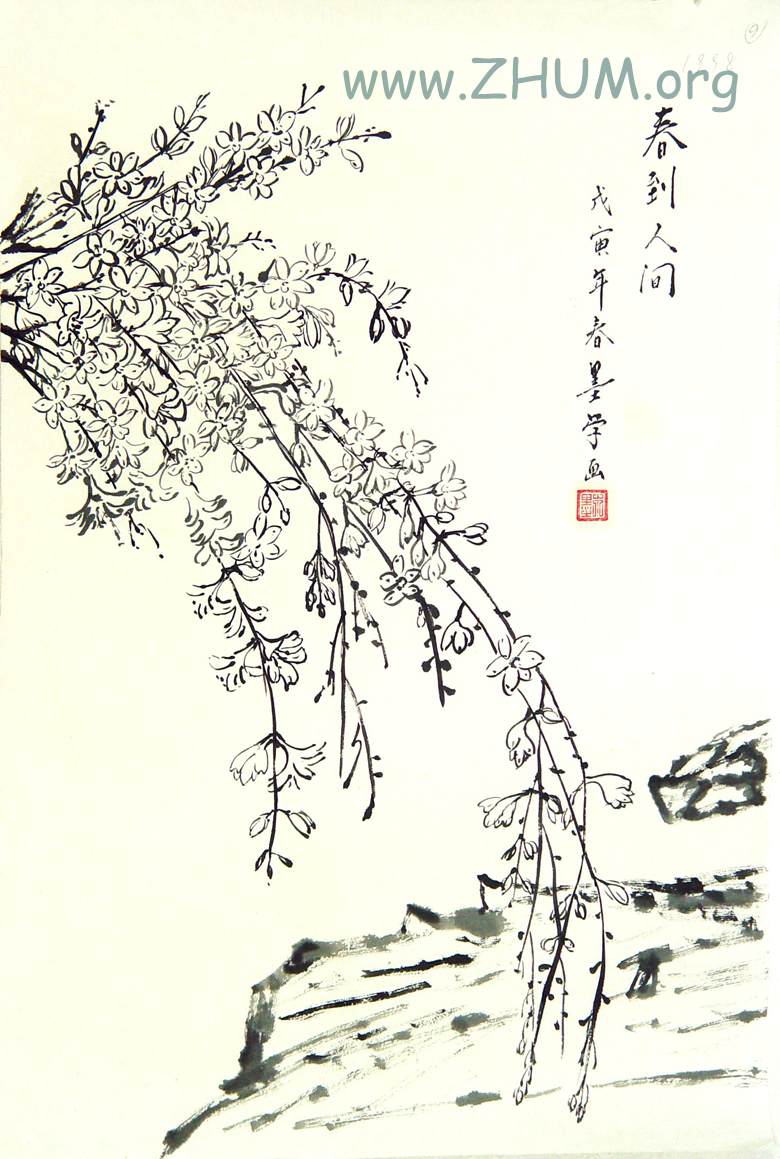 www.ZHUM.org
1998
春到人间
戊寅年春墨学画